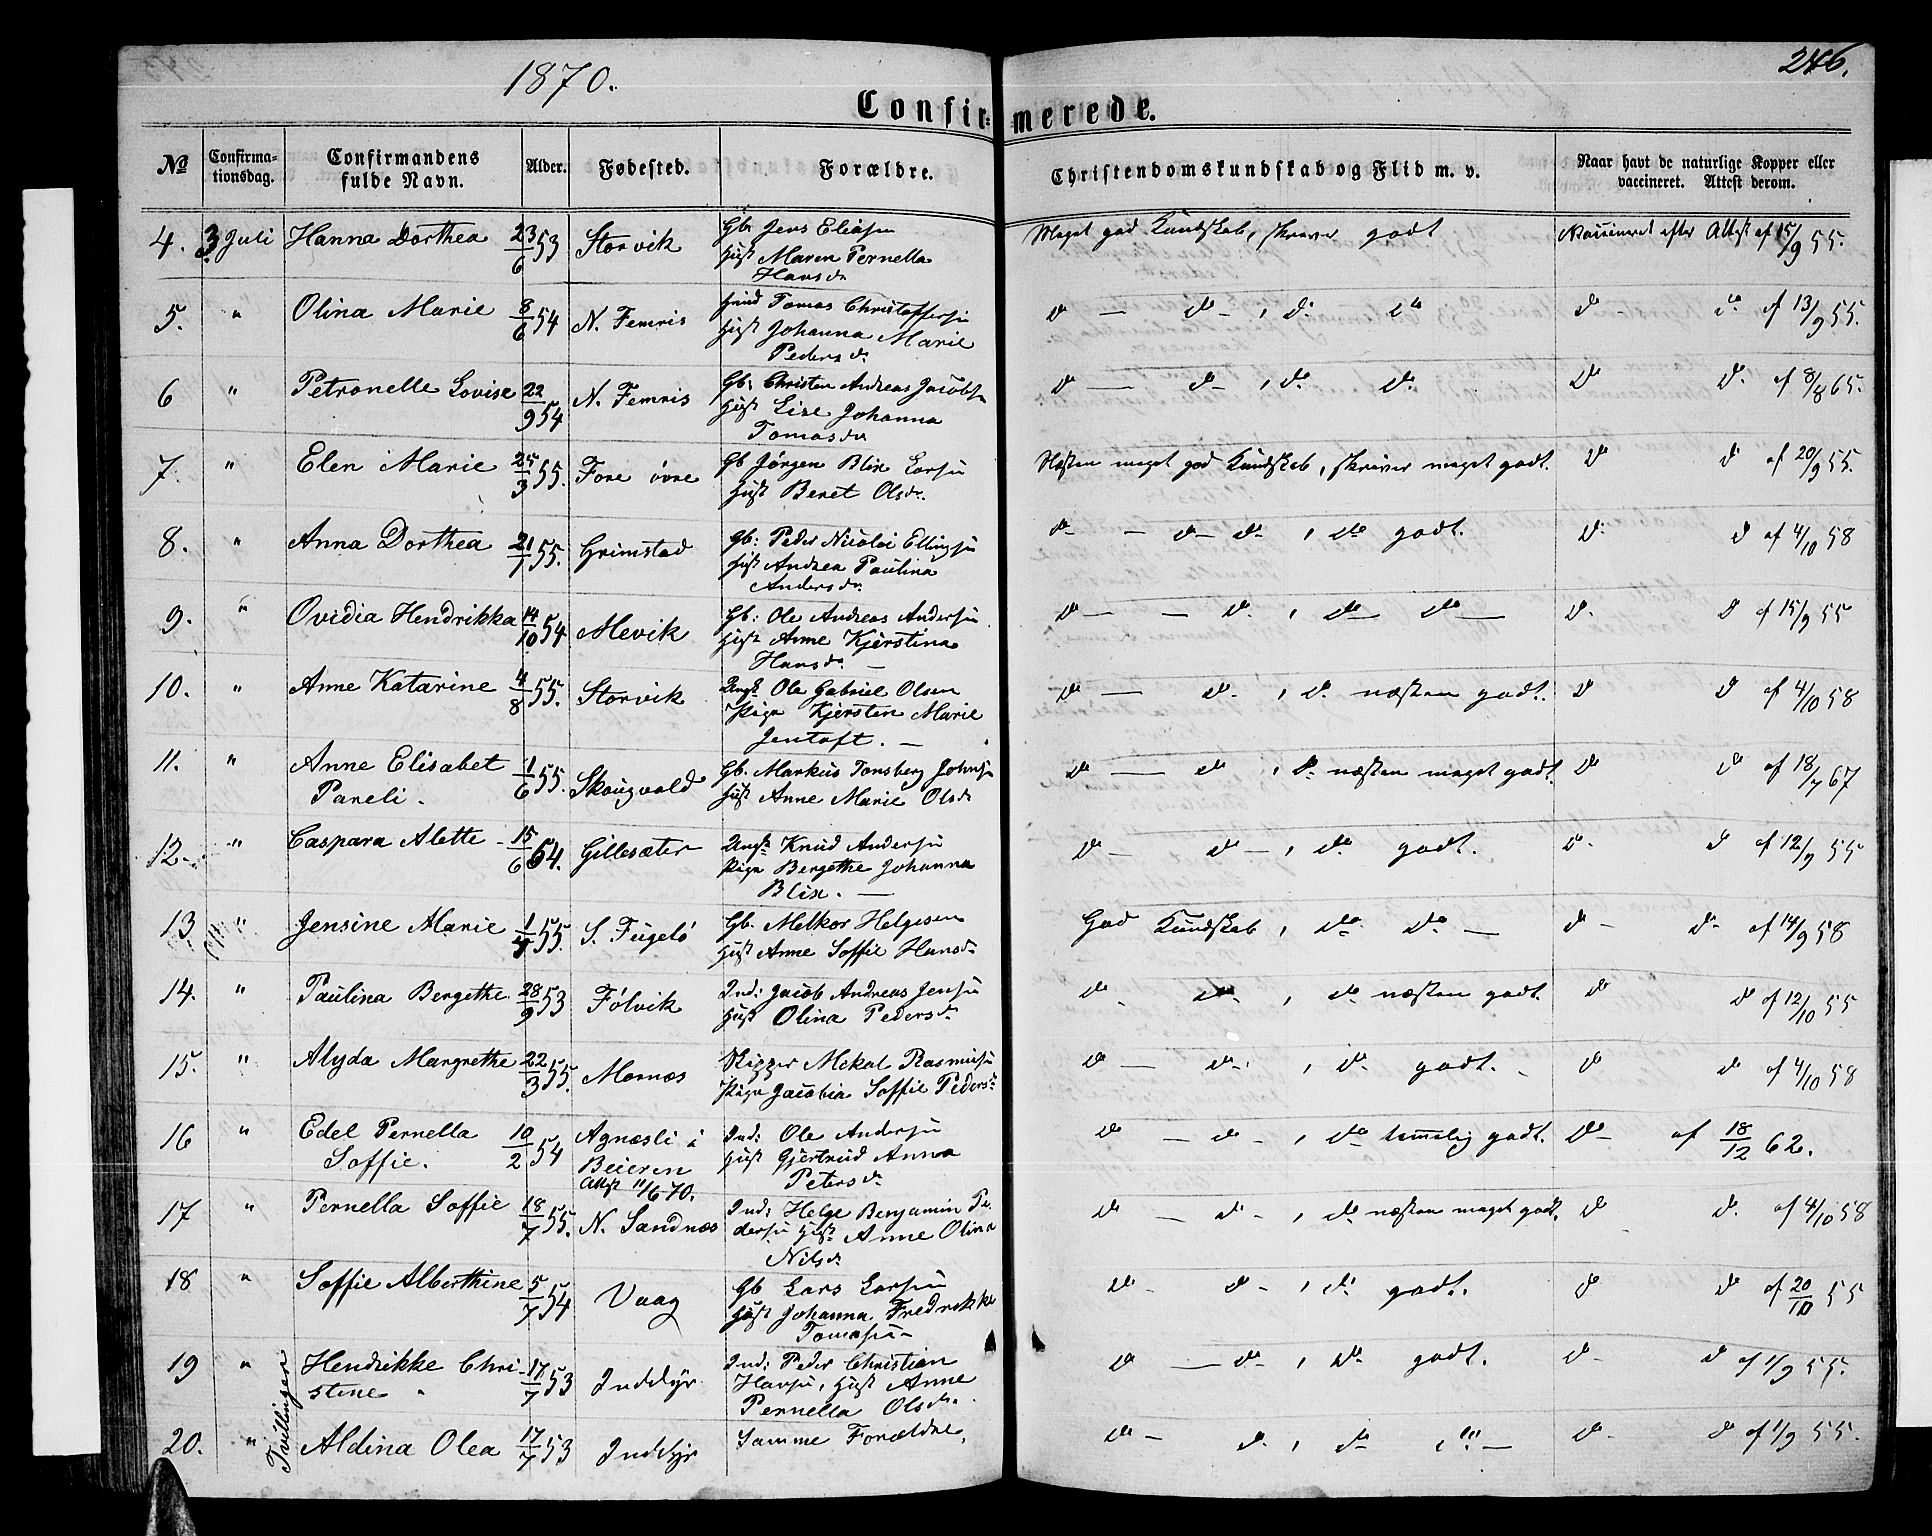 1870.
246.
Confirmerede.
№ Confirmationsdag. Confirmandens fulde Navn. Alder. Fødested. Forældre. Christendomskundskab og Flid m. v. Naar havt de naturlige Kopper eller vaccineret. Attest derom.
4. 3 Juli Hanna Dorthea 23/6 53 Storvik Gb. Jens Eliasen Meget god Kundskab, skriver godt Vaccineret efter Attest af 15/9 55.
Hust Maren Pernella
Hansdr
5. " Olina Marie 8/6 54 N. Femris Ind Tomas Christoffersen d — d – , d. do d d. af 13/9 55.
Hust Johanna Marie
Pedersdr
6 " Petronelle Lovise 22/9 54 N. Femris Gb. Christen Andreas Jacobsen d — d – , d. d. d d. af 8/8 65.
Hust Lise Johanna
Tomasdr
7. " Elen Marie 25/3 55. Fore övre Gb Jörgen Blix Larsen Næsten meget god Kundskab, skriver meget godt. d d af 20/9 55.
Hust Beret Olsdr.
8. " Anna Dorthea 21/7 55. Grimstad Gb: Peder Nicolai Ellingsen d – – d – do , do godt. d. d af 4/10 58
Hust Andrea Paulina
Andersdr
9. " Ovidia Hendrikka 14/10 54 Mevik Gb: Ole Andreas Andersen d — – d. , do do — d. d af 15/9 55
Hust Anne Kjerstina
Hansdr. –
10. " Anne Katarine 4/8 55. Storvik Ungk. Ole Gabriel Olsen d — d – , d. næsten godt. d d af 4/10 58
Pige Kjersten Marie
Jentoft. –
11. " Anne Elisabet 1/6 55. Skougvold Gb. Markus Tonsberg Johnsen d — d , d. næsten meget godt. d d af 18/7 67
Pareli. Hust Anne Marie Olsdr
12. " Caspara Alette 15/6 54. Gillesæter Ungk. Knud Andersen d – d – , do godt. d. d af 12/9 55
Pige Bergethe Johanna
Blix. –
13 " Jensine Marie 1/4 55. S. Fugelö Gb. Melkor Helgesen God Kundskab, do do – d – d. af 14/9 58
Hust Anne Soffie Hansdr
14. " Paulina Bergethe 28/9 53 Fölvik Ind: Jacob Andreas Jensen d – d , do næsten godt. d d af 12/10 55
Hust Olina Pedersdr
15. " Alyda Margrethe 22/3 55. Mornæs Skipper Mekal Rasmusen d – d – , d. godt. – d d af 4/10 58
Pige Jacobia Soffie Pedersdr
16 " Edel Pernella 10/2 54 Agnæsli i Ind: Ole Andersen d – d – , do temmelig godt. d – af 18/12 62.
Soffie. Beieren Hust Gjertrud Anna
Attest 11/6 70. Petersdr
17 " Pernella Soffie 18/7 55. N. Sandnæs Ind: Helge Benjamin Pe d – d – , do næsten meget godt. d d. af 4/10 58
dersen Hust Anne Olina
Nilsdr
18 " Soffie Alberthine 5/7 54 Vaag Gb Lars Larsen d – d – , d. godt. d d af 20/10 55
Hust Johanna Fredrekke
Tomasen
19 " Hendrikke Chri 17/7 53 Inddyr Ind: Peder Christian d — d – , do godt. d – d af 1/9 55.
stine Hansen, Hust Anne
Pernella Olsdr.
20. " Tvillinger Aldina Olea 17/7 53 Inddyr Samme Forældre. d – d. , do do – d – d af 1/9 55.